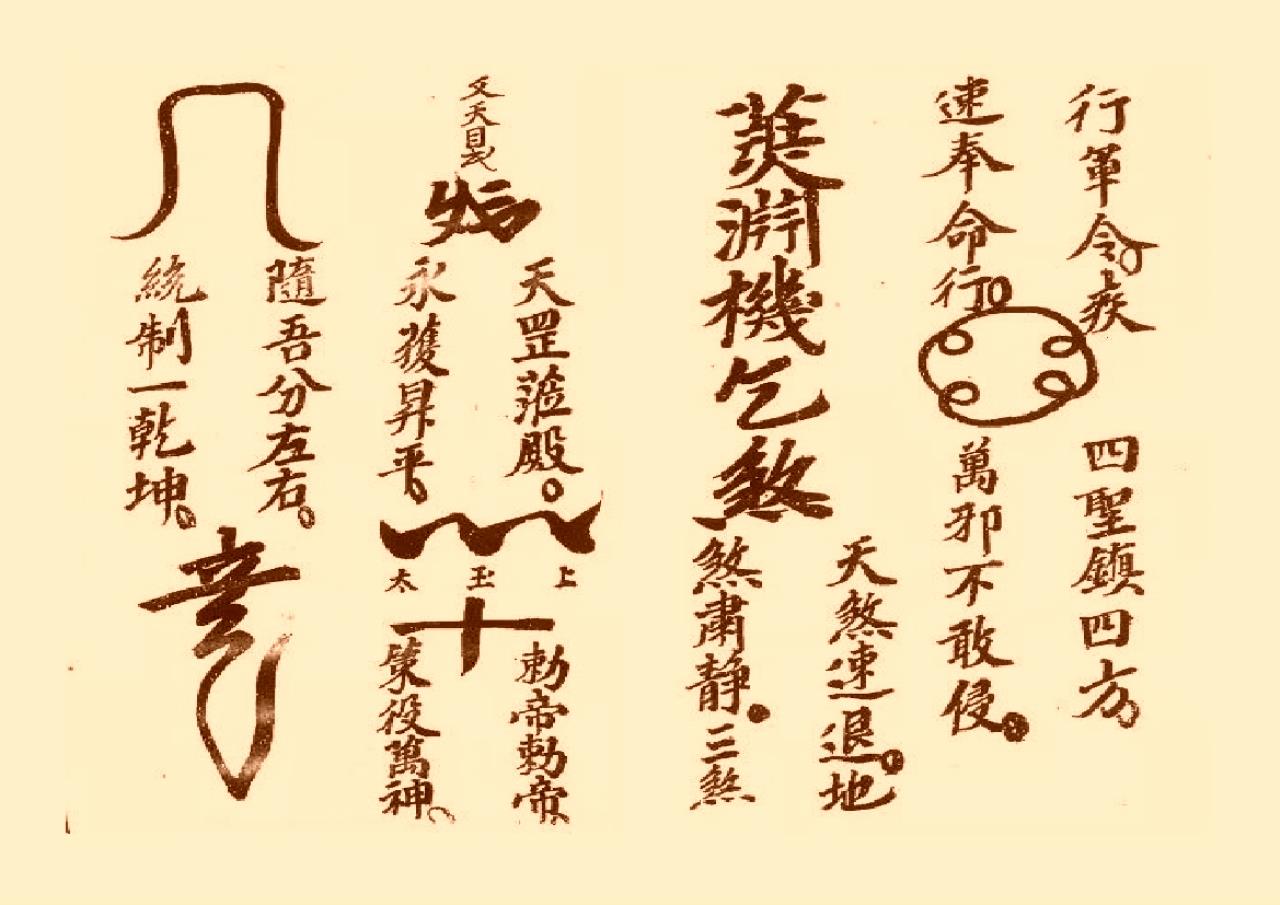 行軍令疾
速奉命行
四聖鎮四方
萬邪不敢侵
淵機乞煞
天煞速退地
煞肅静三煞
又天目
天罡蒞殿
永獲昇平
上
玉
太
勅帝勅帝
策役萬神
隨吾分左右
統制一乾坤